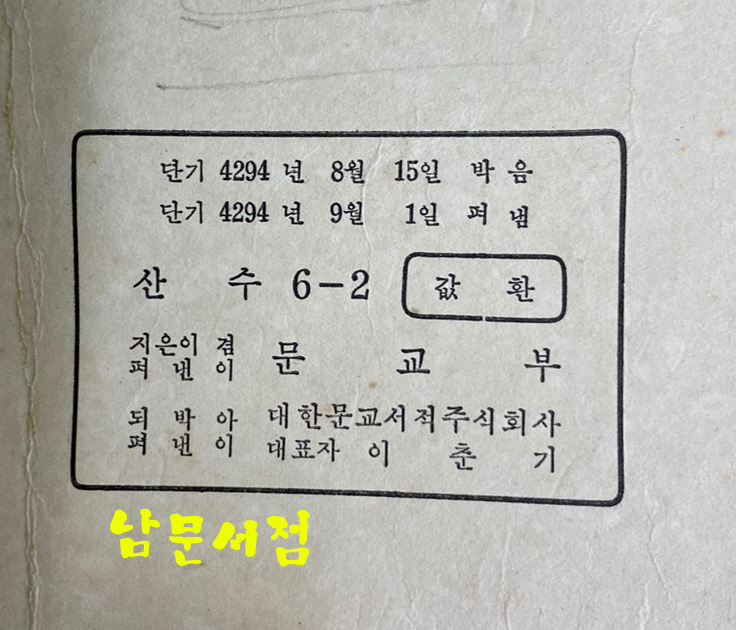 단기 4294 년 8월 15일 박 음
단기 4294 년 9월 1일 펴 냄
산 수 6-2 값 환
지은이 겸
펴 낸 이 문 교 부
되 박 아
펴 낸 이 대한문교서적주식회사
대표자 이 춘 기
남문서점